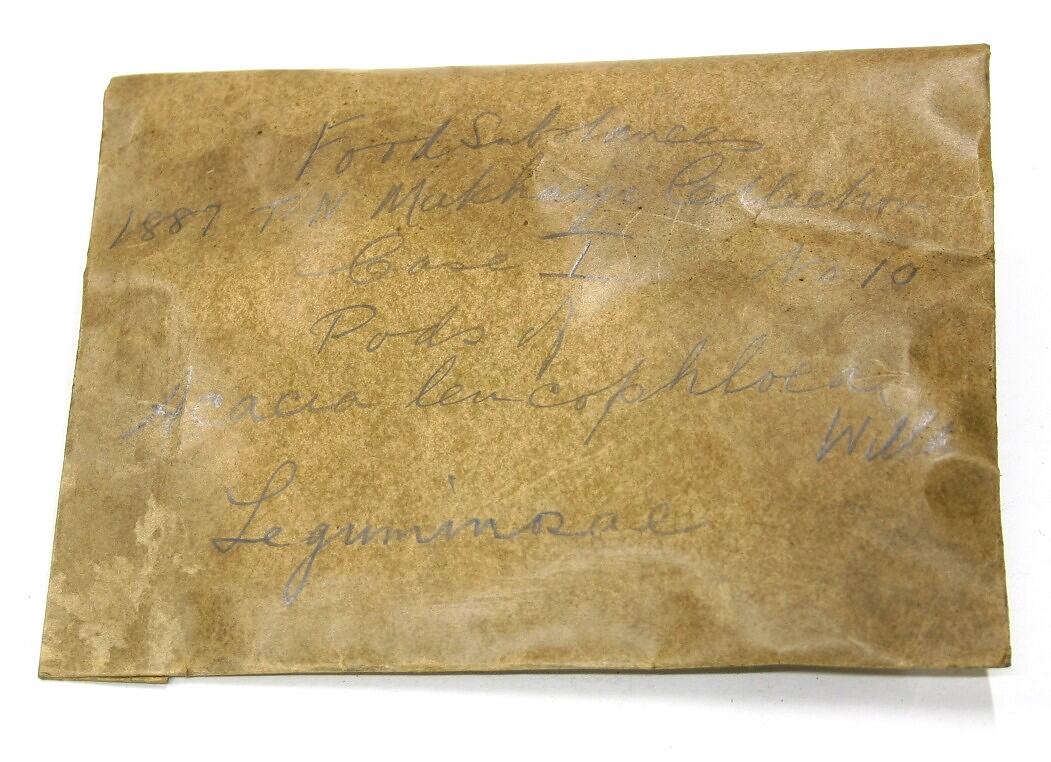 Food Substances
1887 T. N Mukharji Collection
Case I No 10
Pods of
Acacia leucophloea
Willd
Leguminosae